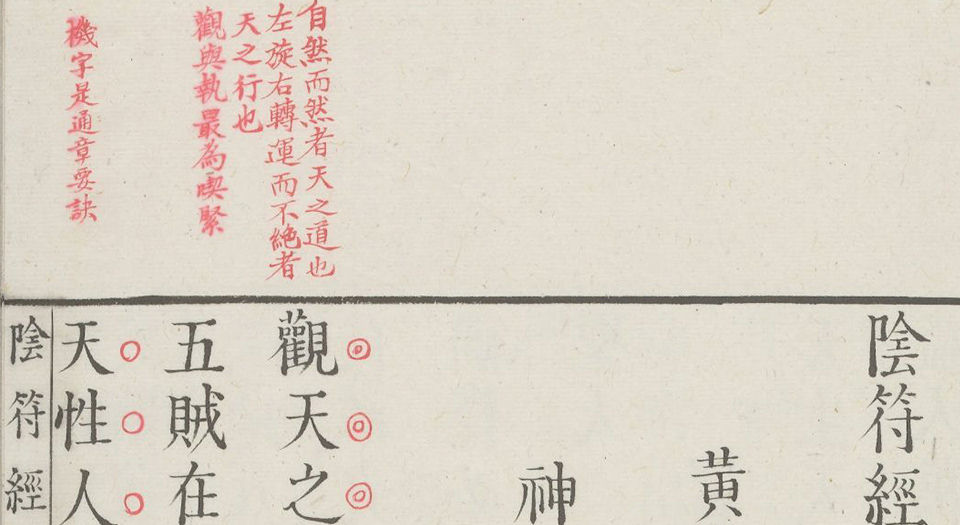 自然而然者天之道也
左旋右轉運而不絶者
天之行也
觀與執最為喫緊
機字是通章要訣
陰符經
黃
神
觀天之
五賊在
天性人
陰符經